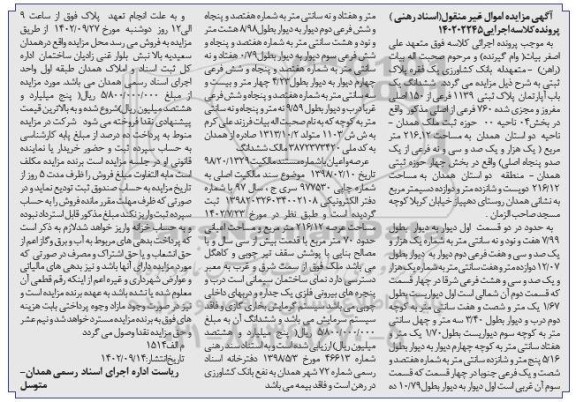 آگهی مزایده اموال غیر منقول(اسناد رهنی)
پرونده کلاسه اجرایی ۱۴۰۲۰۲۲۴۵
به موجب پرونده اجرائی کلاسه فوق متعهد علی
اصغر بیات( وام گیرنده) و مرحوم صحبت اله بیات
(راهن) – متعهدله بانک کشاورزی یک فقره پلاک
ثبتی به شرح ذیل مزایده می گردد ششدانگ یک
باب آپارتمان پلاک ثبتی ۱۱۳۹ فرعی از ۱۵۰ اصلی
مفروز و مجزی شده ۷۶۰ فرعی از اصلی مذکور واقع
در بخش ۰۴ ناحیه ۰۰ حوزه ثبت ملک همدان –
ناحیه دو استان همدان به مساحت ۲۱۶.۱۲ متر
مربع ( یک هزار و یک صد و سی و نه فرعی از یک
صدو پنجاه اصلی) واقع در بخش چهار حوزه ثبتی
همدان – منطقه دو استان همدان به مساحت
۲۱۶/۱۲ دویست و شانزده متر و دوازده دسیمتر مربع
به نشانی همدان روستای دهپیاز خیابان کربلا کوچه
مسجد صاحب الزمان .
به حدود در دو قسمت اول دیوار به دیوار بطول
۷/۹۹ هفت و نود و نه سانتی متر به شماره یک هزار و
یک صد و سی و هفت فرعی دوم دیوار به دیوار بطول
۱۲/۰۷ دوازده متر و هفت سانتی متر به شماره یک هزار
و یک صد و سی و هشت فرعی شرقا در چهار قسمت
که قسمت دوم آن شمالی است اول دیواریست بطول
۱/۶۷ یک متر و شصت و هفت سانتی متر به کوچه
دوم درب و دیوار بطول ۲/۴۰ سه متر و چهل سانتی
متر به کوچه سوم دیواریست بطول ۱/۷۰ یک متر
هفتاد سانتی متر به کوچه چهارم دیوار به دیوار بطول
۵/۱۶ پنج متر و شانزده سانتی متر به شماره هفتصد و
شصت و یک فرعی جنوبا در چهار قسمت که قسمت
سوم آن غربی است اول دیوار به دیوار بطول ۱۰/۷۹ ده
متر و هفتاد و نه سانتی متر به شماره هفتصد و پنجاه
و شش فرعی دوم دیوار به دیوار بطول ۸/۹۸ هشت متر
و نود و هشت سانتی متر به شماره هفتصد و پنجاه و
شش فرعی سوم دیوار به دیوار بطول ۰/۷۹ هفتاد و نه
سانتی متر به شماره هفتصد و پنجاه و شش فرعی
چهارم دیوار به دیوار بطول ۴/۲۳ چهار متر و بیست و
سه سانتی متر به شماره هفتصد و پنجاه و شش فرعی
غربا درب و دیوار بطول ۹/۵۹ نه متر و پنجاه و نه سانتی
متر به کوچه که به نام صحت اله بیات فرزند علی کرم
به ش ش ۱۱۰۳ متولد ۱۳۱۳/۱۰/۲ صادره از همدان
به کد ملی ۳۸۷۲۳۷۳۴۲۰ مالک ششدانگ
عرصه و اعیان با شماره مستند مالکیت ۹۸/۲۰/۱۳۲۹
تاریخ ۱۳۹۸/۰۲/۱۰ موضوع سند مالکیت اصلی به
شماره چاپی ۹۷۷۵۳۰ سری ج ، سال ۹۷ با شماره
دفتر الکترونیکی ۱۳۹۸۲۰۳۲۶۰۳۴۰۰۲۱۰۸ ثبت
گردیده است و طبق نظر در مورخ ۱۴۰۲/۷/۲۳
مساحت عرصه ۲۱۶/۱۲ متر مربع و مساحت اعیانی
حدود ۷۰ متر مربع با قدمت بیش از سی سال و با
مصالح بنایی با پوشش سقف تیر چوبی و کاهگل
می باشد ملک فوق از سمت شرق و غرب به معبر
دسترسی دارد نمای ساختمان سیمانی است درب و
پنجره های بیرونی فلزی یک جداره و درب های داخلی
چوبی می باشد سیستم گرمایش بخاری گازی و فاقد
سیستم سرمایش می باشد و ششدانگ آن به مبلغ
۵/۸۰۰/۰۰۰/۰۰۰ ریال( پنج میلیارد و هشتصد
میلیون ریال) ارزیابی شده است و به استناد سند رهنی
شماره ۴۶۶۱۳ مورخ ۱۳۹۸/۵/۳ دفترخانه اسناد
رسمی شماره ۷۲ شهر همدان به نفع بانک کشاورزی
در رهن است و فاقد بیمه می باشد
و به علت انجام تعهد پلاک فوق از ساعت ۹
الی ۱۲ روز دوشنبه مورخ ۱۴۰۲/۰۹/۲۷ از طریق
مزایده به فروش می رسد محل مزایده واقع درهمدان
سعیدیه بالا نبش بلوار غنی زادیان ساختمان اداره
کل ثبت اسناد و املاک همدان طبقه اول واحد
اجرای اسناد رسمی همدان می باشد مورد مزایده
از مبلغ ۵/۸۰۰/۰۰۰/۰۰۰ ریال( پنج میلیارد و
هشتصد میلیون ریال)شروع شده و به بالاترین قیمت
پیشنهادی نقدا فروخته می شود شرکت در مزایده
منوط به پرداخت ده درصد از مبلغ پایه کارشناسی
به حساب سپرده ثبت و حضور خریدار یا نماینده
قانونی او در جلسه مزایده است برنده مزایده مکلف
است مابه التفاوت مبلغ فروش را ظرف مدت ۵ روز از
تاریخ مزایده به حساب صندوق ثبت تودیع نماید و در
صورتی که ظرف مهلت مقرر مانده فروش را به حساب
سپرده ثبت واریز نکند مبلغ مذکور قابل استرداد نبوده
و به حساب خزانه واریز خواهد شد لازم به ذکر است
که پرداخت بدهی های مربوط به آب و برق و گاز اعم از
حق انشعاب و یا حق اشتراک و مصرف در صورتی که
مورد مزایده دارای آنها باشد و نیز بدهی های مالیاتی
و عوارض شهرداری و غیره اعم از اینکه رقم قطعی آن
معلوم شده یا نشده باشد به عهده برنده مزایده است و
نیز در صورت وجود مازاد وجوه پرداختی بابت هزینه
های فوق به برنده مزایده مسترد خواهد شد و نیم عشر
و حق مزایده نقدا وصول می گردد
م الف ۱۵۱۴
تاریخ انتشار: ۱۴۰۲/۰۹/۱۴
ریاست اداره اجرای اسناد رسمی همدان–
متوسل